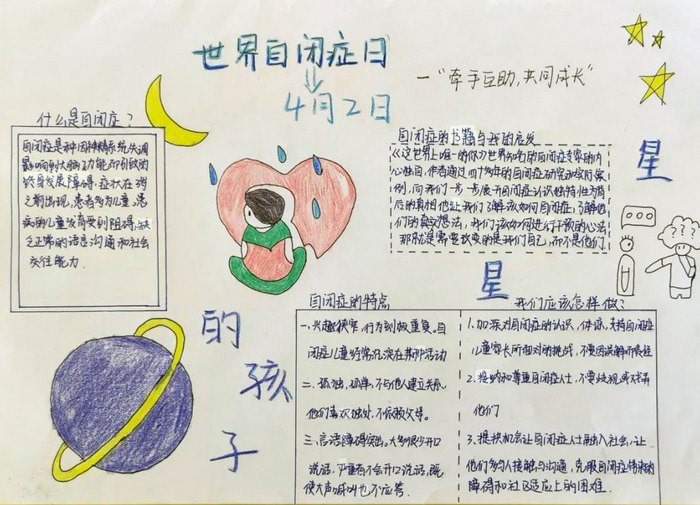 世界自闭症日
4月2日
一"牵手互助,共同成长"
什么是自闭症?
自闭症是种因神精系统失调
影响到大脑功能而引致的
终身发展障碍,症状在3岁
之前出现,患者多为儿童,患
疾的儿童发育受到阻碍,缺
乏正常的语言沟通和社会
交往能力.
自闭症的书籍与我的启发
《这世上唯一的你》世界知名自闭症专家的内
心独白,作者通过四十多年的自闭症研究
例,向我们一步一步展开自闭症认识独特性为背
后的真相.他让我们了解该如何自闭症,了解他
们的真实想法,我们该如何进行干预的心法
那就是需要改变的是我们自己,而不是他们.
星
星
的
孩
子
自闭症的特点
一、兴趣狭窄,行为刻板重复.自
闭症儿童经常沉浸在某种活动
二、孤独,孤单,不与他人建立关系,
他们喜欢独处,不依赖父母.
三、言语障碍突出,大多很少开口
说话,严重者不会开口说话,既
使大声喊叫也不应答.
我们应该怎样做?
1.加深对自闭症的认识,体谅,支持自闭症
儿童家长所面对的挑战,不要因误解而责怪
2.接纳和尊重自闭症人士,不要歧视或讥弄
他们
3.提供机会让自闭症人士融入社会,让
他们多与人接触与沟通,克服自闭症带来的
障碍和社区适应上的困难.